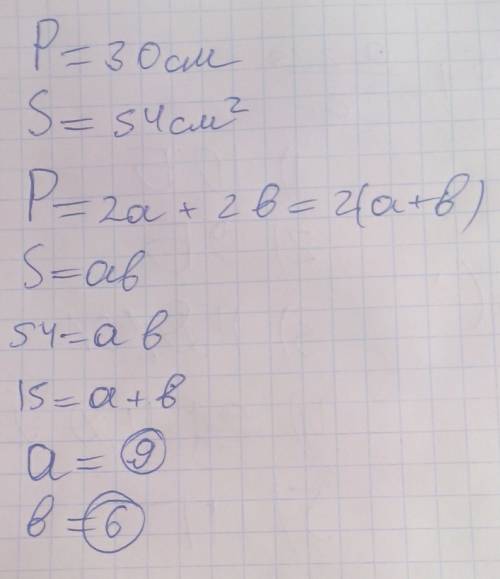 P = 30см
S = 54см²
P = 2a + 2в = 2(a+в)
S = aв
54 = a в
15 = a + в
a = 9
в = 6